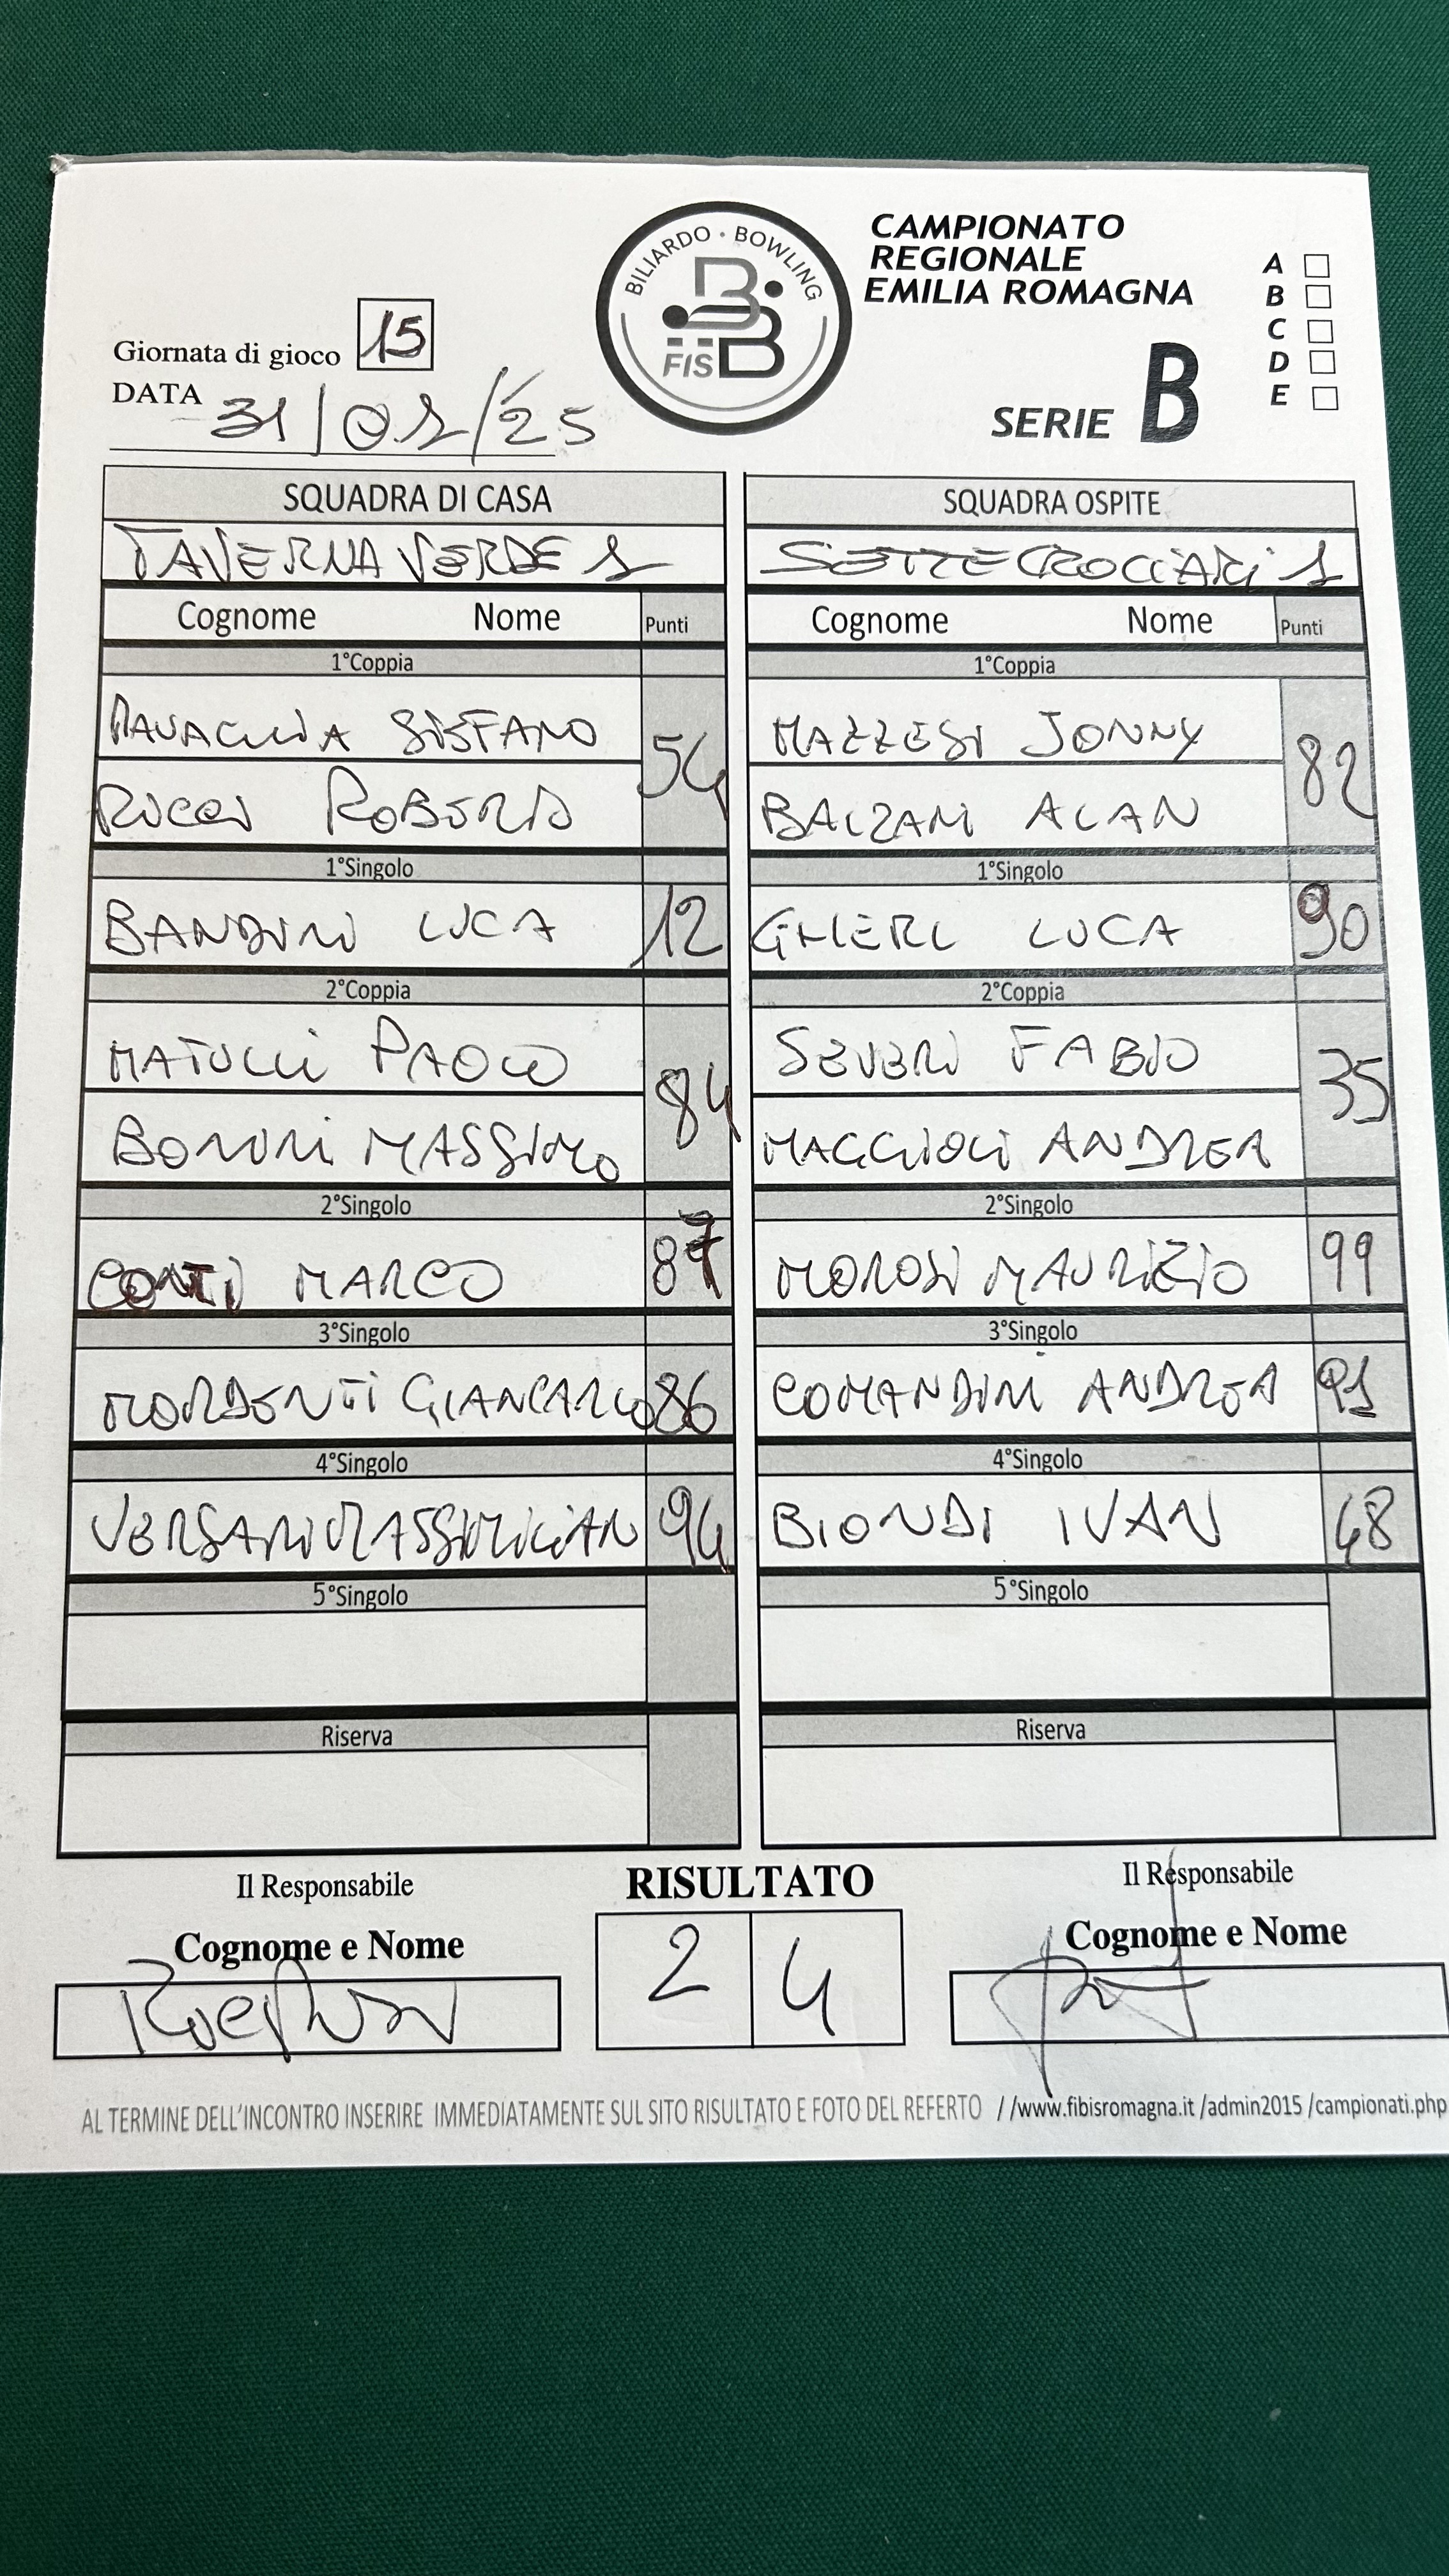 BILIARDO • BOWLING
FISBB
CAMPIONATO
REGIONALE
EMILIA ROMAGNA
SERIE B
A
B
C
D
E
Giornata di gioco 15
DATA 31/01/25
SQUADRA DI CASA
TAVERNA VERDE 1
Cognome Nome Punti
1°Coppia
RAVAGLIA STEFANO
54
RICCI ROBERTO
1°Singolo
BANDINI LUCA 12
2°Coppia
MATULLI PAOLO
84
BONINI MASSIMO
2°Singolo
CONTI MARCO
3°Singolo
MORDENTI GIANCARLO 86
4°Singolo
VERSARI MASSIMILIAN 94
5°Singolo
Riserva
SQUADRA OSPITE
SETTECROCIARI 1
Cognome Nome Punti
1°Coppia
MAZZESI JONNY
82
BALZANI ALAN
1°Singolo
GHERL LUCA 90
2°Coppia
SEVERI FABIO
35
MAGGIOLI ANDREA
2°Singolo
MOROSI MAURIZIO 99
3°Singolo
COMANDINI ANDREA 91
4°Singolo
BIONDI IVAN 48
5°Singolo
Riserva
Il Responsabile
Cognome e Nome
RISULTATO
2 4
Il Responsabile
Cognome e Nome
AL TERMINE DELL'INCONTRO INSERIRE IMMEDIATAMENTE SUL SITO RISULTATO E FOTO DEL REFERTO //www.fibisromagna.it /admin2015 /campionati.php